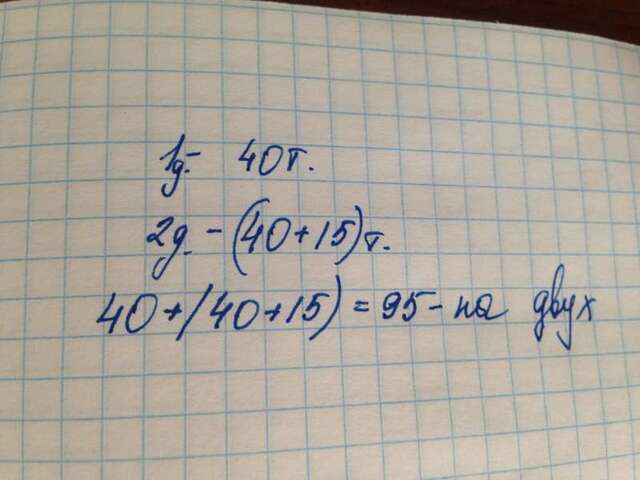 1д. - 40т.
2д. - (40+15)т.
40+(40+15)=95-на двух